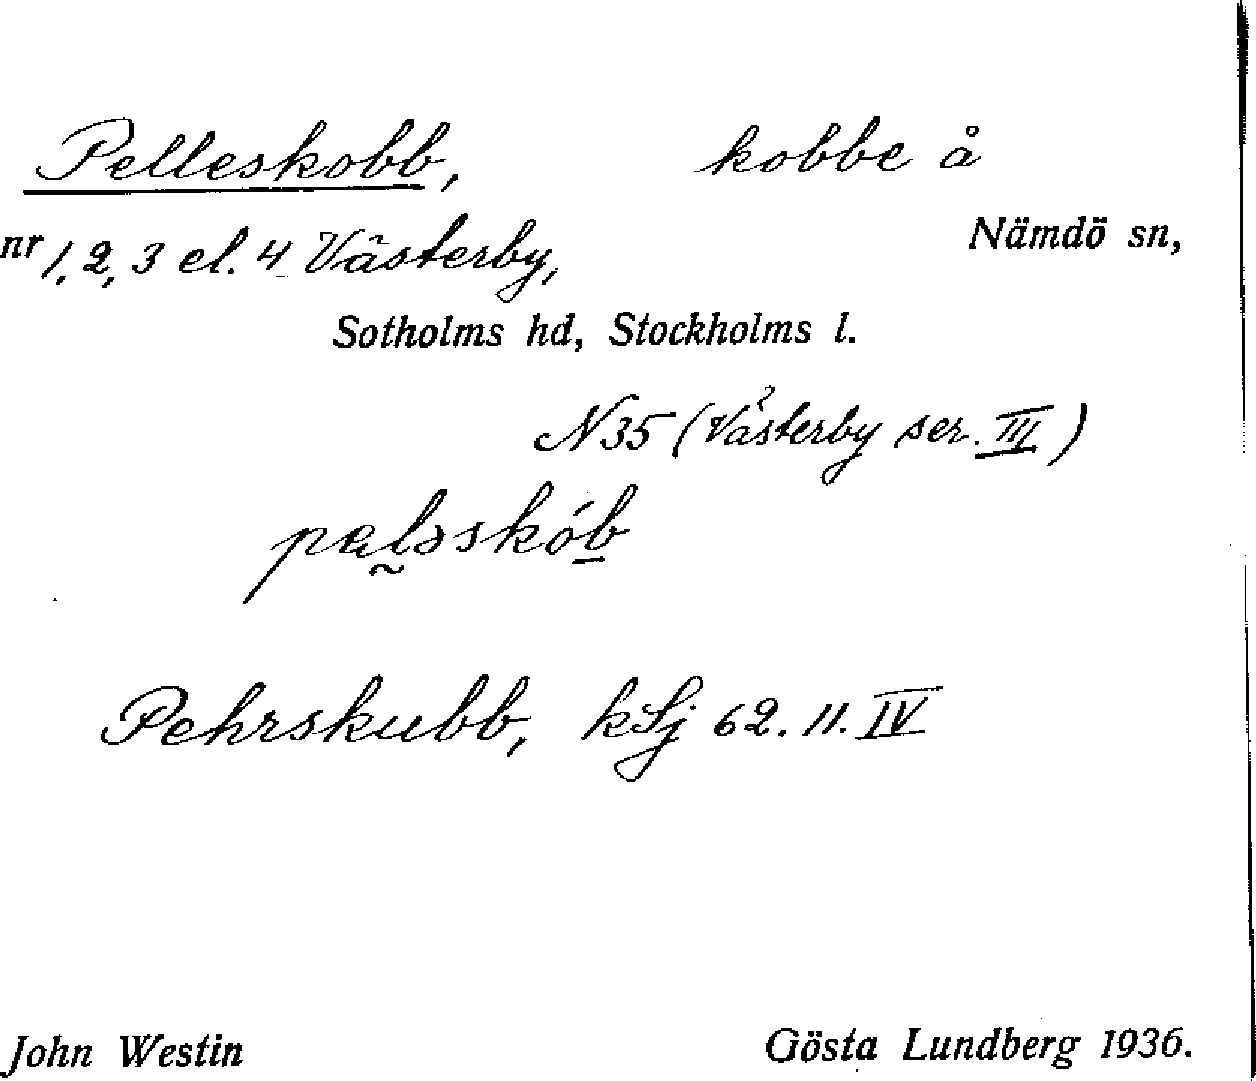 Pelleskobb, kobbe å
nr 1, 2, 3 el. 4 Västerby, Nämdö sn,
Sotholms hd, Stockholms l.
N35 (Västerby ser. III)
paləskób
Pehrskubb, kSj 62. 11. IV
John Westin Gösta Lundberg 1936.